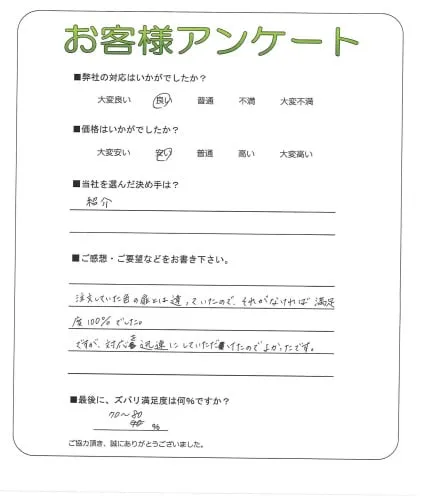 お客様アンケート
■弊社の対応はいかがでしたか？
大変良い 良い 普通 不満 大変不満
■価格はいかがでしたか？
大変安い 安い 普通 高い 大変高い
■当社を選んだ決め手は？
紹介
■ご感想・ご要望などをお書き下さい。
注文していた色の扉とは違っていたので、それがなければ満足
度100%でした。
ですが、対応も迅速にしていただけたのでよかったです。
■最後に、ズバリ満足度は何%ですか？
70～80
%
ご協力頂き、誠にありがとうございました。